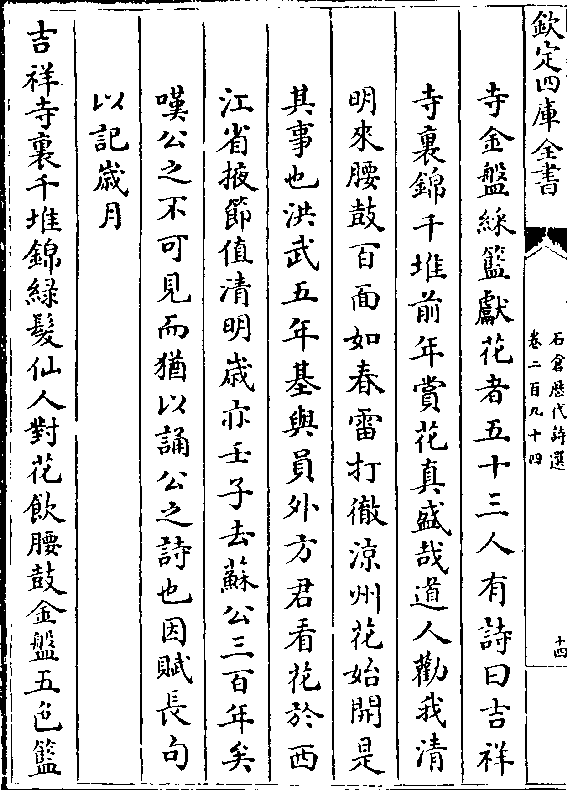 欽定四庫全書
石倉歴代詩選
卷二百九十四
十四
寺金盤綵籃獻花者五十三人有詩曰吉祥
寺裏錦千堆前年賞花真盛哉道人勸我清
明來腰鼓百面如春雷打徹涼州花始開是
其事也洪武五年基與員外方君看花於西
江省掖節值清明歳亦壬子去蘇公三百年矣
嘆公之不可見而猶以誦公之詩也因賦長句
以記歳月
吉祥寺裏千堆錦緑髮仙人對花飲腰鼓金盤五色籃